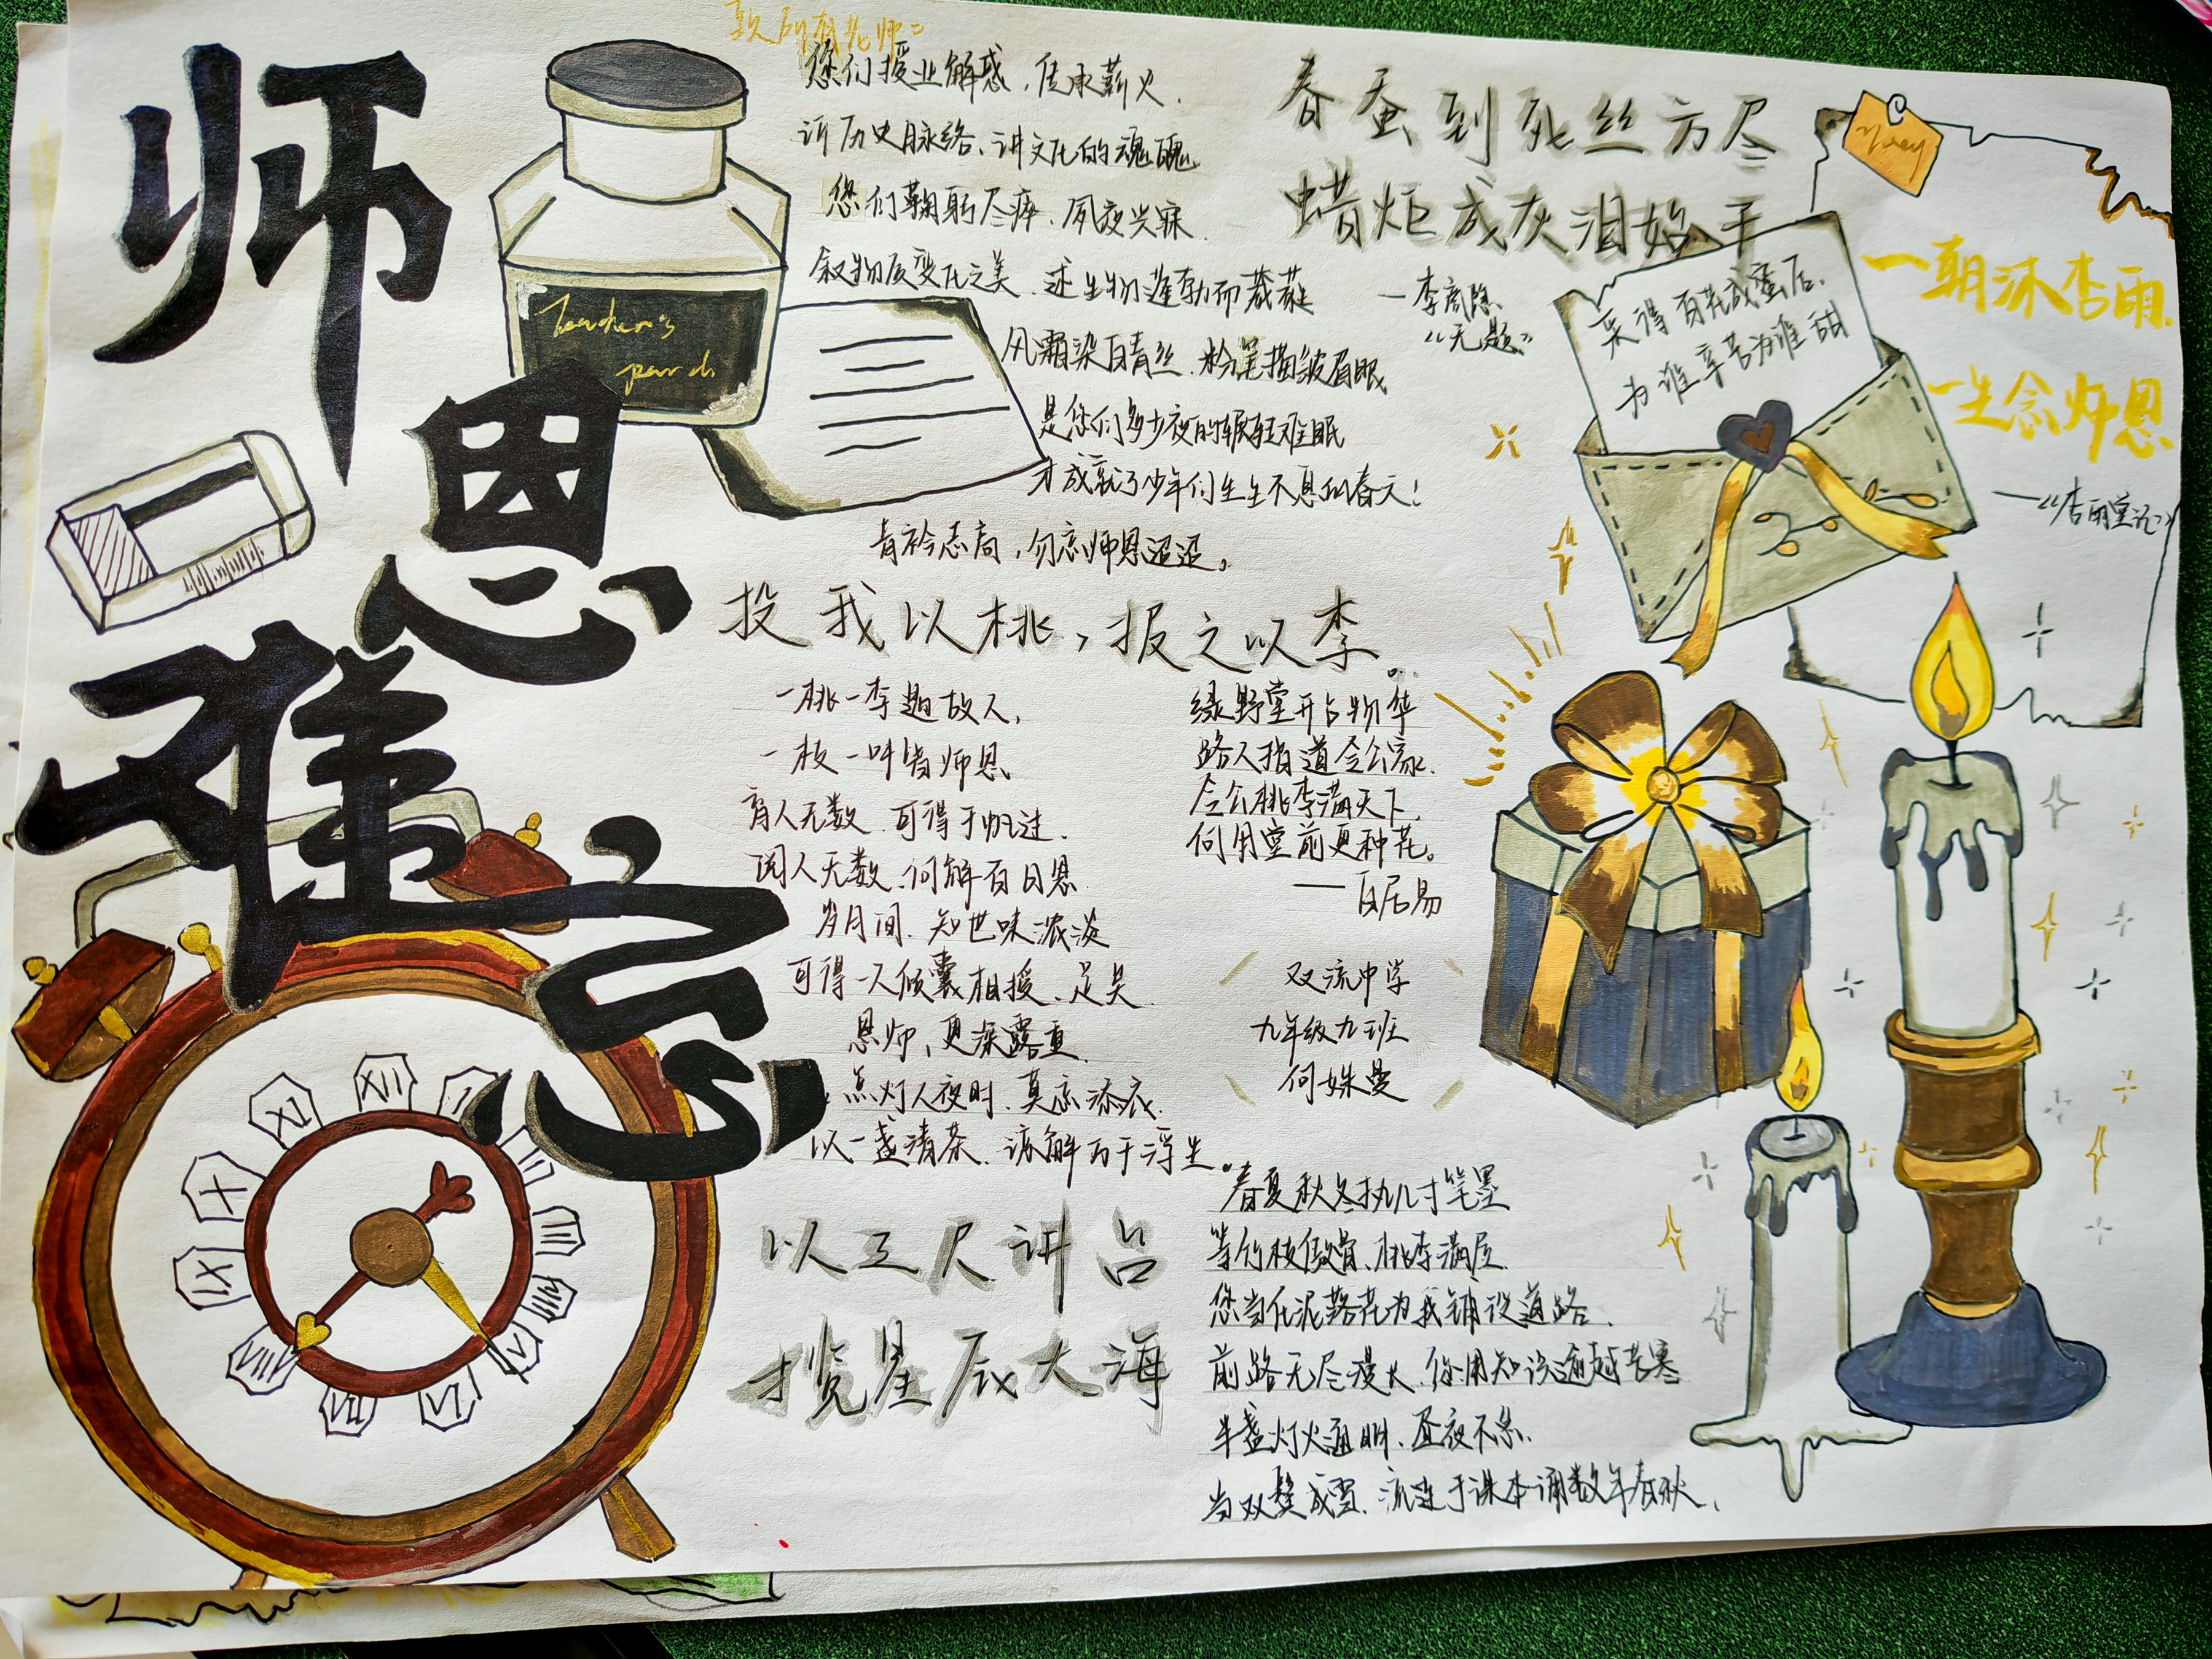 师恩难忘
致所有老师:
您们授业解惑,传承薪火,
讲历史脉络、讲文化的魂魄
您们鞠躬尽瘁、夙夜兴寐
叙物质变化之美、述生物蓬勃而葳蕤
风霜染白青丝、粉笔描皱眉眼
是您们多少夜的辗转难眠
才成就了少年们生生不息的春天!
青衿志高,勿忘师恩迢迢。
Teacher's
春蚕到死丝方尽
蜡炬成灰泪始干
—李商隐
“无题”
采得百花成蜜后,
为谁辛苦为谁甜
一朝沐杏雨,
一生念师恩
—《杏雨堂记》
投我以桃,报之以李。
一桃一李趣故人,
一枝一叶皆师恩
育人无数、可得千帆过、
阅人无数、何解百日恩
岁月间、知世味浓淡
可得一人倾囊相授、足矣
恩师、更深露重
点灯人夜时、莫忘添衣
以一盏清茶、谅解万千浮生。
绿野堂开占物华
路人指道令公家、
令公桃李满天下
何用堂前更种花。
——白居易
双流中学
九年级九班
何姝曼
以三尺讲台
揽星辰大海
春夏秋冬执几寸笔墨
等竹枝傲骨、桃李满屋
您当作泥落花为我铺设道路、
前路无尽漫长、你用知识逾越苦寒
半盏灯火通明、昼夜不息
当双鬓成雪、流连于课本诵数年春秋、
XI
XII
I
X
IX
VIII
VII
VI